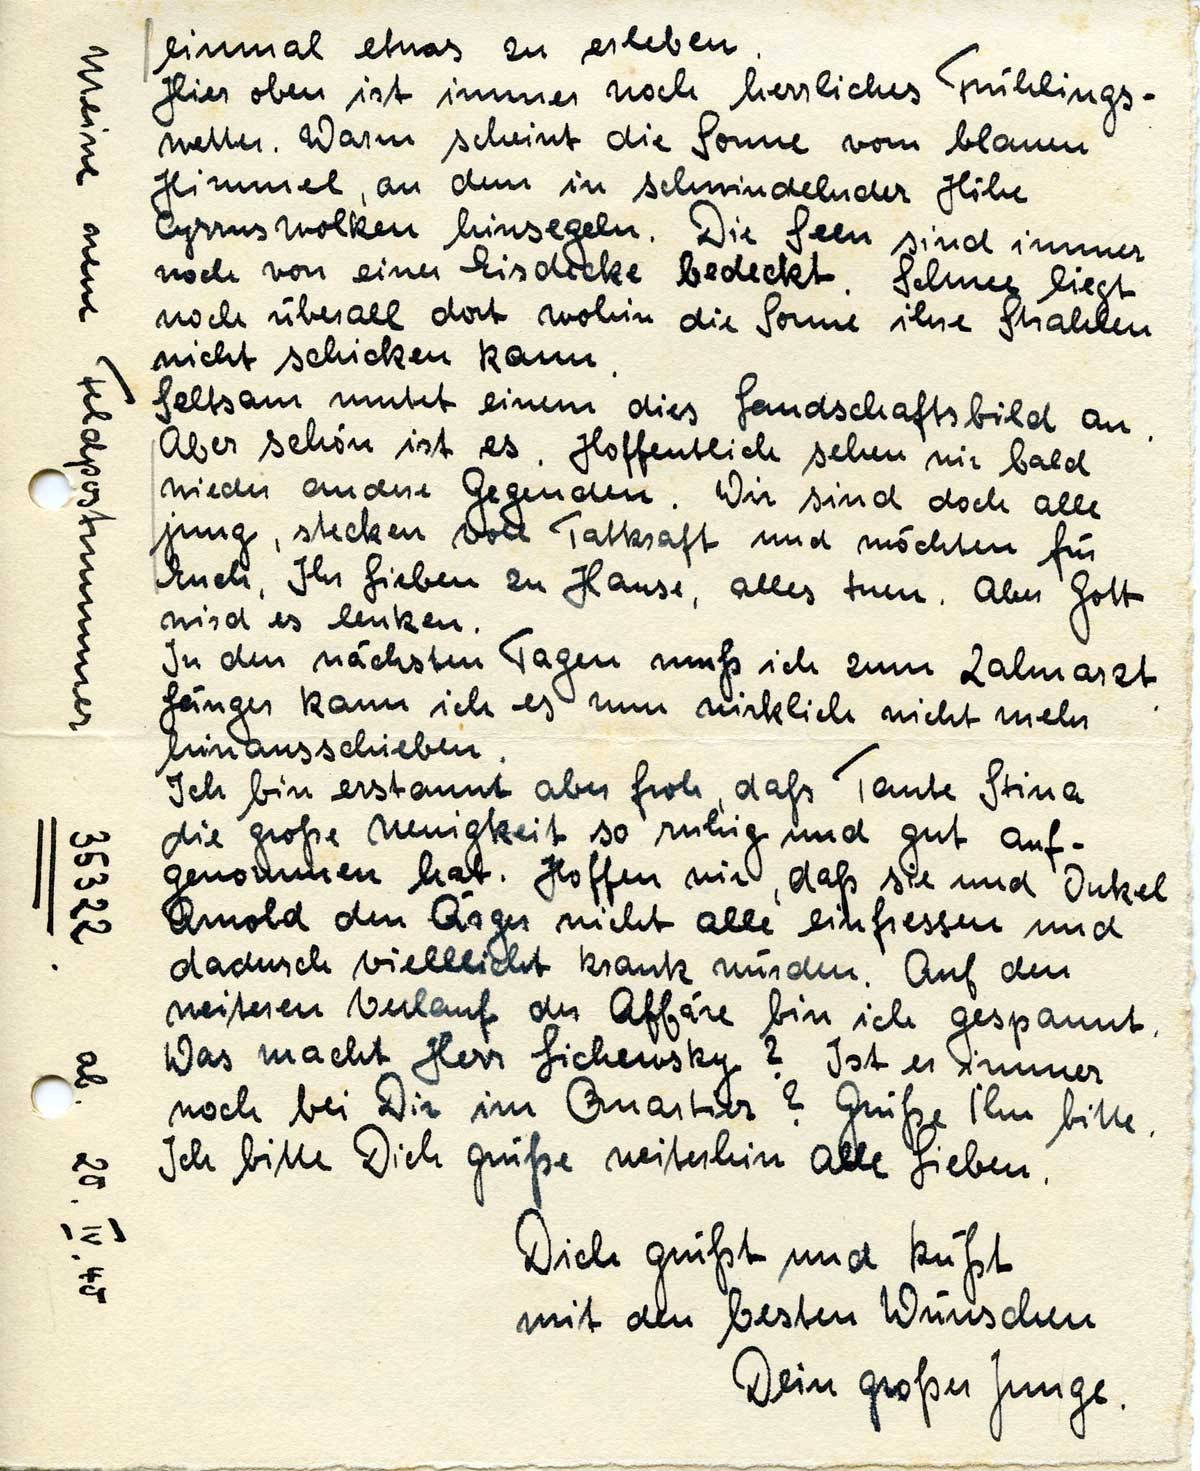 einmal etwas zu erleben.
Hier oben ist immer noch herrliches Frühlings-
wetter. Warm scheint die Sonne vom blauen
Himmel, an dem in schwindelnder Höhe
Cyrruswolken hinsegeln. Die Seen sind immer
noch von einer Eisdecke bedeckt. Schnee liegt
noch überall dort wohin die Sonne ihre Strahlen
nicht schicken kann.
Seltsam mutet einem dies Landschaftsbild an.
Aber schön ist es. Hoffentlich sehen wir bald
wieder andere Gegenden. Wir sind doch alle
jung, stecken voll Tatkraft und möchten für
Euch, Ihr Lieben zu Hause, alles tuen. Aber Gott
wird es lenken.
In den nächsten Tagen muß ich zum Zahnarzt.
Länger kann ich es nun wirklich nicht mehr
hinausschieben.
Ich bin erstaunt aber froh, daß Tante Stina
die große Neuigkeit so ruhig und gut auf-
genommen hat. Hoffen wir, daß sie und Onkel
Arnold den Ärger nicht alle einfressen und
dadurch vielleicht krank würden. Auf den
weiteren Verlauf der Affäre bin ich gespannt.
Was macht Herr Lichewsky? Ist er immer
noch bei Dir im Quartier? Grüße Ihn bitte.
Ich bitte Dich grüße weiterhin alle Lieben.
Dich grüßt und küßt
mit den besten Wünschen
Dein großer Junge.
Meine neue Feldpostnummer 35322. ab. 20. IV. 40